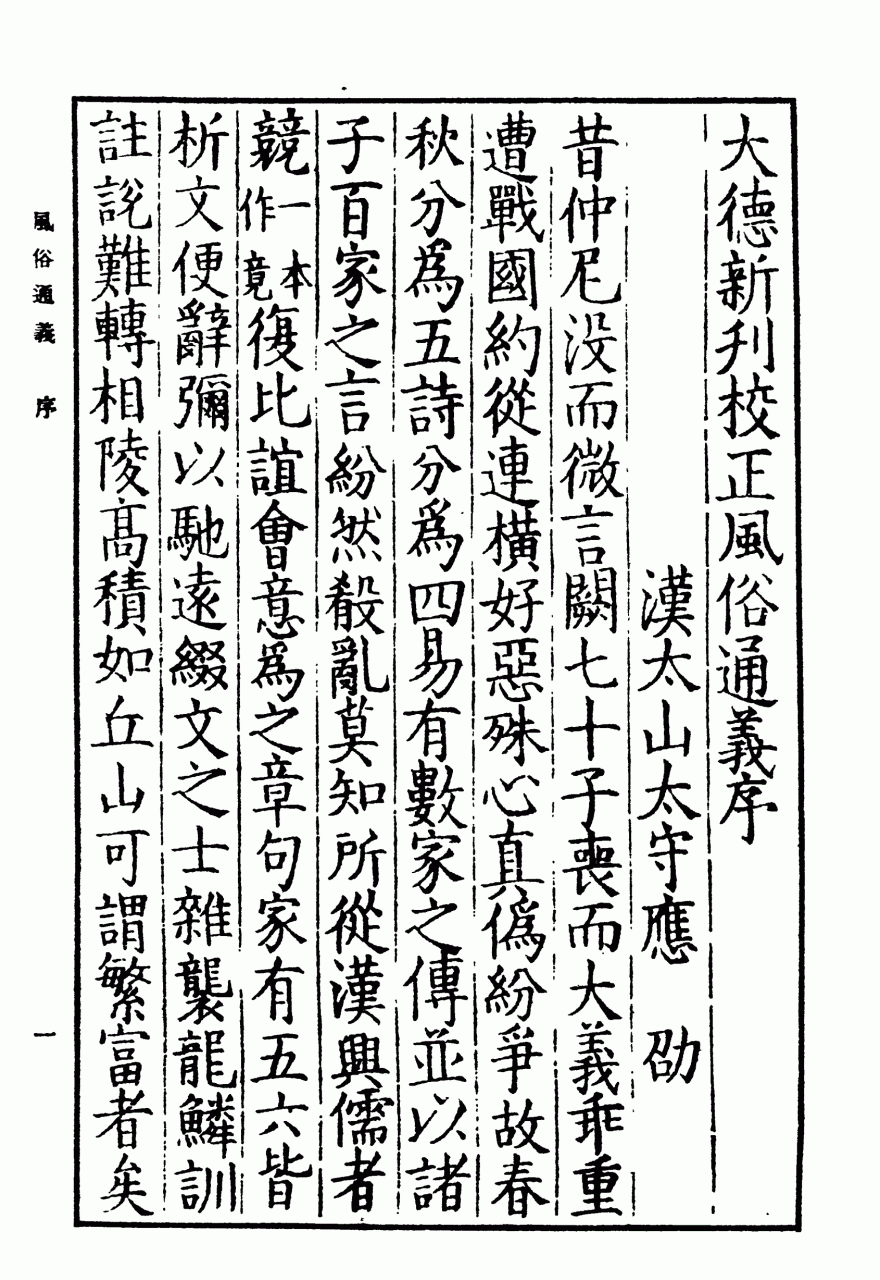 大德新刋校正風俗通義序
漢太山太守應 劭
昔仲尼没而微言闕七十子喪而大義乖重
遭戰國約從連橫好惡殊心真僞紛爭故春
秋分爲五詩分爲四易有數家之傳並以諸
子百家之言紛然殽亂莫知所從漢興儒者
競一本作竟復比誼會意爲之章句家有五六皆
析文便辭彌以馳逺綴文之士雜襲龍鱗訓
註說難轉相陵髙積如丘山可謂繁富者矣
風俗通義 序
一